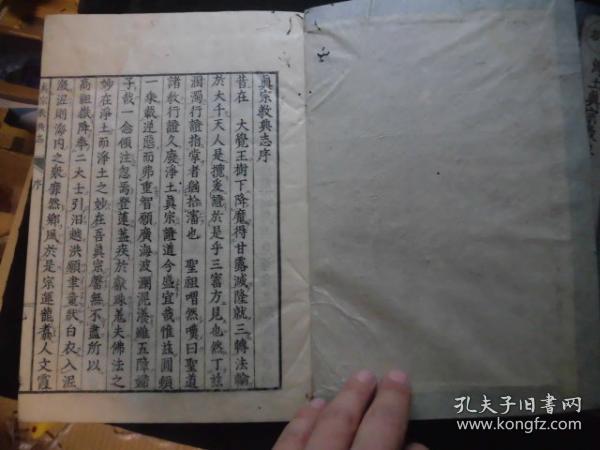 真宗教典志序
昔在 大覺王樹下降魔得甘露滅隆就三轉法輪
於大千天人是攪爰證於是乎三寶方見也然丁茲
涸濁行證指掌者猶拾瀋也 聖祖喟然嘆曰聖道
諸教行證久廢淨土眞宗證道今盛宜哉惟茲圓頓
一乘載逆惡而弗重智願廣海波瀾混瀁雖五障
子哉一念傾注忽焉登蓮蓋疾於獻珠羗夫佛法之
妙在淨土而淨土之妙在吾眞宗罄無不盡所以
高祖嶽降奉二大士引汨越洪願聿童猷白衣入泥
滋涅則海內之衆靡然鄉風於是宗運龍煮人文霞
真宗教典志
序
孔夫子旧书网
www.kongfz.com